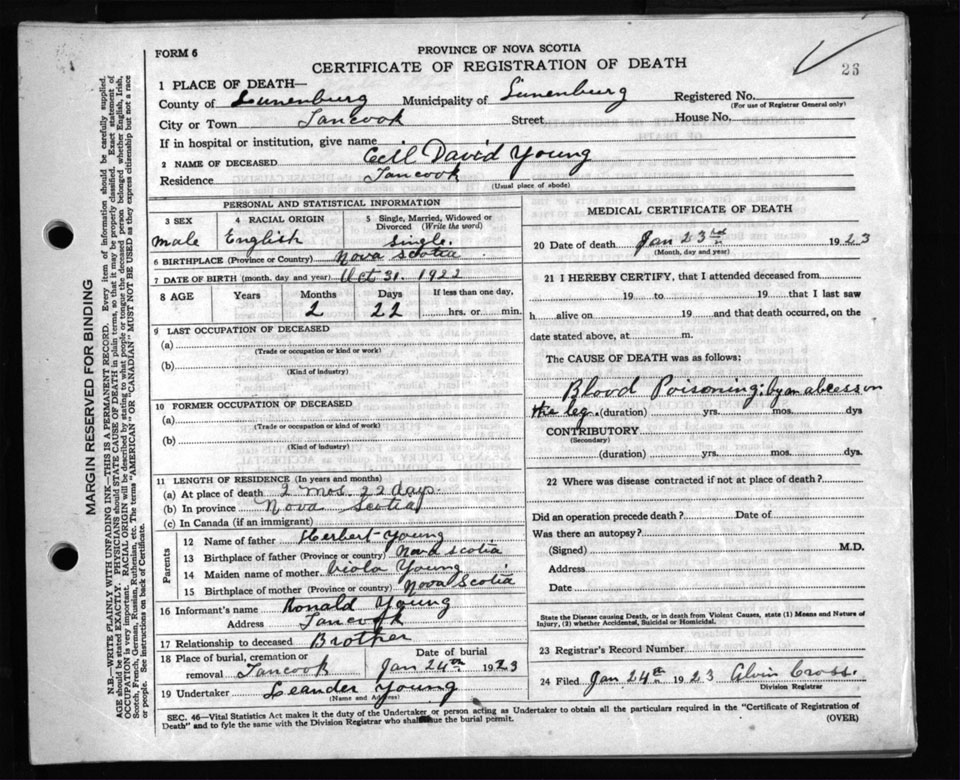 FORM 6
PROVINCE OF NOVA SCOTIA
CERTIFICATE OF REGISTRATION OF DEATH
26
1 PLACE OF DEATH—
County of Lunenburg Municipality of Lunenburg Registered No.
(For use of Registrar General only)
City or Town Tancook Street House No.
If in hospital or institution, give name
2 NAME OF DECEASED Cecil David Young
Residence Tancook
(Usual place of abode)
PERSONAL AND STATISTICAL INFORMATION
3 SEX 4 RACIAL ORIGIN 5 Single, Married, Widowed or Divorced (Write the word)
Male English Single.
6 BIRTHPLACE (Province or Country) Nova Scotia
7 DATE OF BIRTH (month, day and year) Oct 31. 1922
8 AGE Years Months Days If less than one day,
2 22 hrs. or min.
9 LAST OCCUPATION OF DECEASED
(a)
(Trade or occupation or kind or work)
(b)
(Kind of industry)
10 FORMER OCCUPATION OF DECEASED
(a)
(Trade or occupation or kind of work)
(b)
(Kind of industry)
11 LENGTH OF RESIDENCE (In years and months)
(a) At place of death 2 mos. 22 days.
(b) In province Nova Scotia
(c) In Canada (if an immigrant)
Parents
12 Name of father Herbert Young
13 Birthplace of father (Province or country) Nova Scotia
14 Maiden name of mother Viola Young
15 Birthplace of mother (Province or country) Nova Scotia
16 Informant's name Ronald Young
Address Tancook
17 Relationship to deceased Brother
18 Place of burial, cremation or removal Tancook Date of burial Jan 24th 1923
19 Undertaker Leander Young
(Name and Address)
MEDICAL CERTIFICATE OF DEATH
20 Date of death Jan 23 1923
(Month, day and year)
21 I HEREBY CERTIFY, that I attended deceased from
19 to 19 that I last saw
h alive on 19 and that death occurred, on
date stated above, at m.
The CAUSE OF DEATH was as follows:
Blood Poisoning; by an abcess on
the leg. (duration) yrs. mos. dys
CONTRIBUTORY
(Secondary)
(duration) yrs. mos. dys.
22 Where was disease contracted if not at place of death?
Did an operation precede death? Date of
Was there an autopsy?
(Signed) M.D.
Address
Date
State the Disease causing Death, or in death from Violent Causes, state (1) Means and Nature of
Injury, (2) whether Accidental, Suicidal or Homicidal.
23 Registrar's Record Number
24 Filed Jan 24th 1923 Alvin Cross.
Division Registrar
SEC. 46—Vital Statistics Act makes it the duty of the Undertaker or person acting as Undertaker to obtain all the particulars required in the "Certificate of Registration of
Death" and to fyle the same with the Division Registrar who shall issue the burial permit.
(OVER)
MARGIN RESERVED FOR BINDING
N.B—WRITE PLAINLY WITH UNFADING INK—THIS IS A PERMANENT RECORD. Every item of information should be carefully supplied.
AGE should be stated EXACTLY. PHYSICIANS should STATE CAUSE OF DEATH in plain terms, so that it may be properly classified. Exact statement of
OCCUPATION is very important. RACIAL ORIGIN will be described by stating to what people or tongue the deceased person belonged whether English, Irish,
Scotch, French, German, Russian, Ruthenian, etc. The terms "AMERICAN" OR "CANADIAN" MUST NOT BE USED as they express citizenship but not a race
or people. See instructions on back of Certificate.